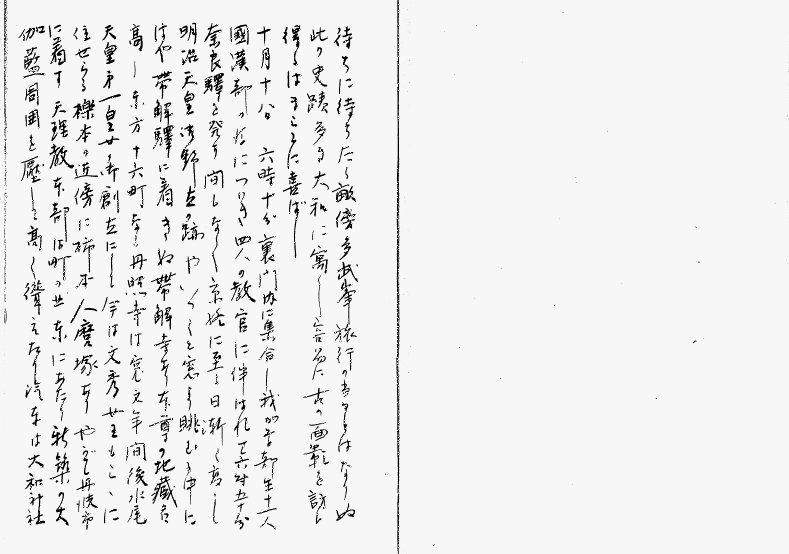 待ちに待ちたる畝傍多武峯旅行の当日とはなりぬ
此の史蹟多き大和に寓し 古の面影を訪ふ
得るはまことに喜ばし
十月十八日 六時十分裏門内に集合し我が 部生十二人
國漢部の につゞき四人の教官に伴はれて六時五十分
奈良驛を発す間もなく京終に至る日漸く高し
明治天皇御野立の跡やいづこと窓より眺むる中に
はや帯解驛に着きぬ帯解寺あり本尊の地蔵
高し東方十六町なる円照寺は寛文年間後水尾
天皇第一皇女の御創立にして今は文秀女王もこゝに
住せらる櫟本の近傍に柿本人麿塚ありやがて丹波市
に着す天理教本部は町の 東にあたり新築の大
伽藍周囲を壓して高く聳えたり汽車は大和神社